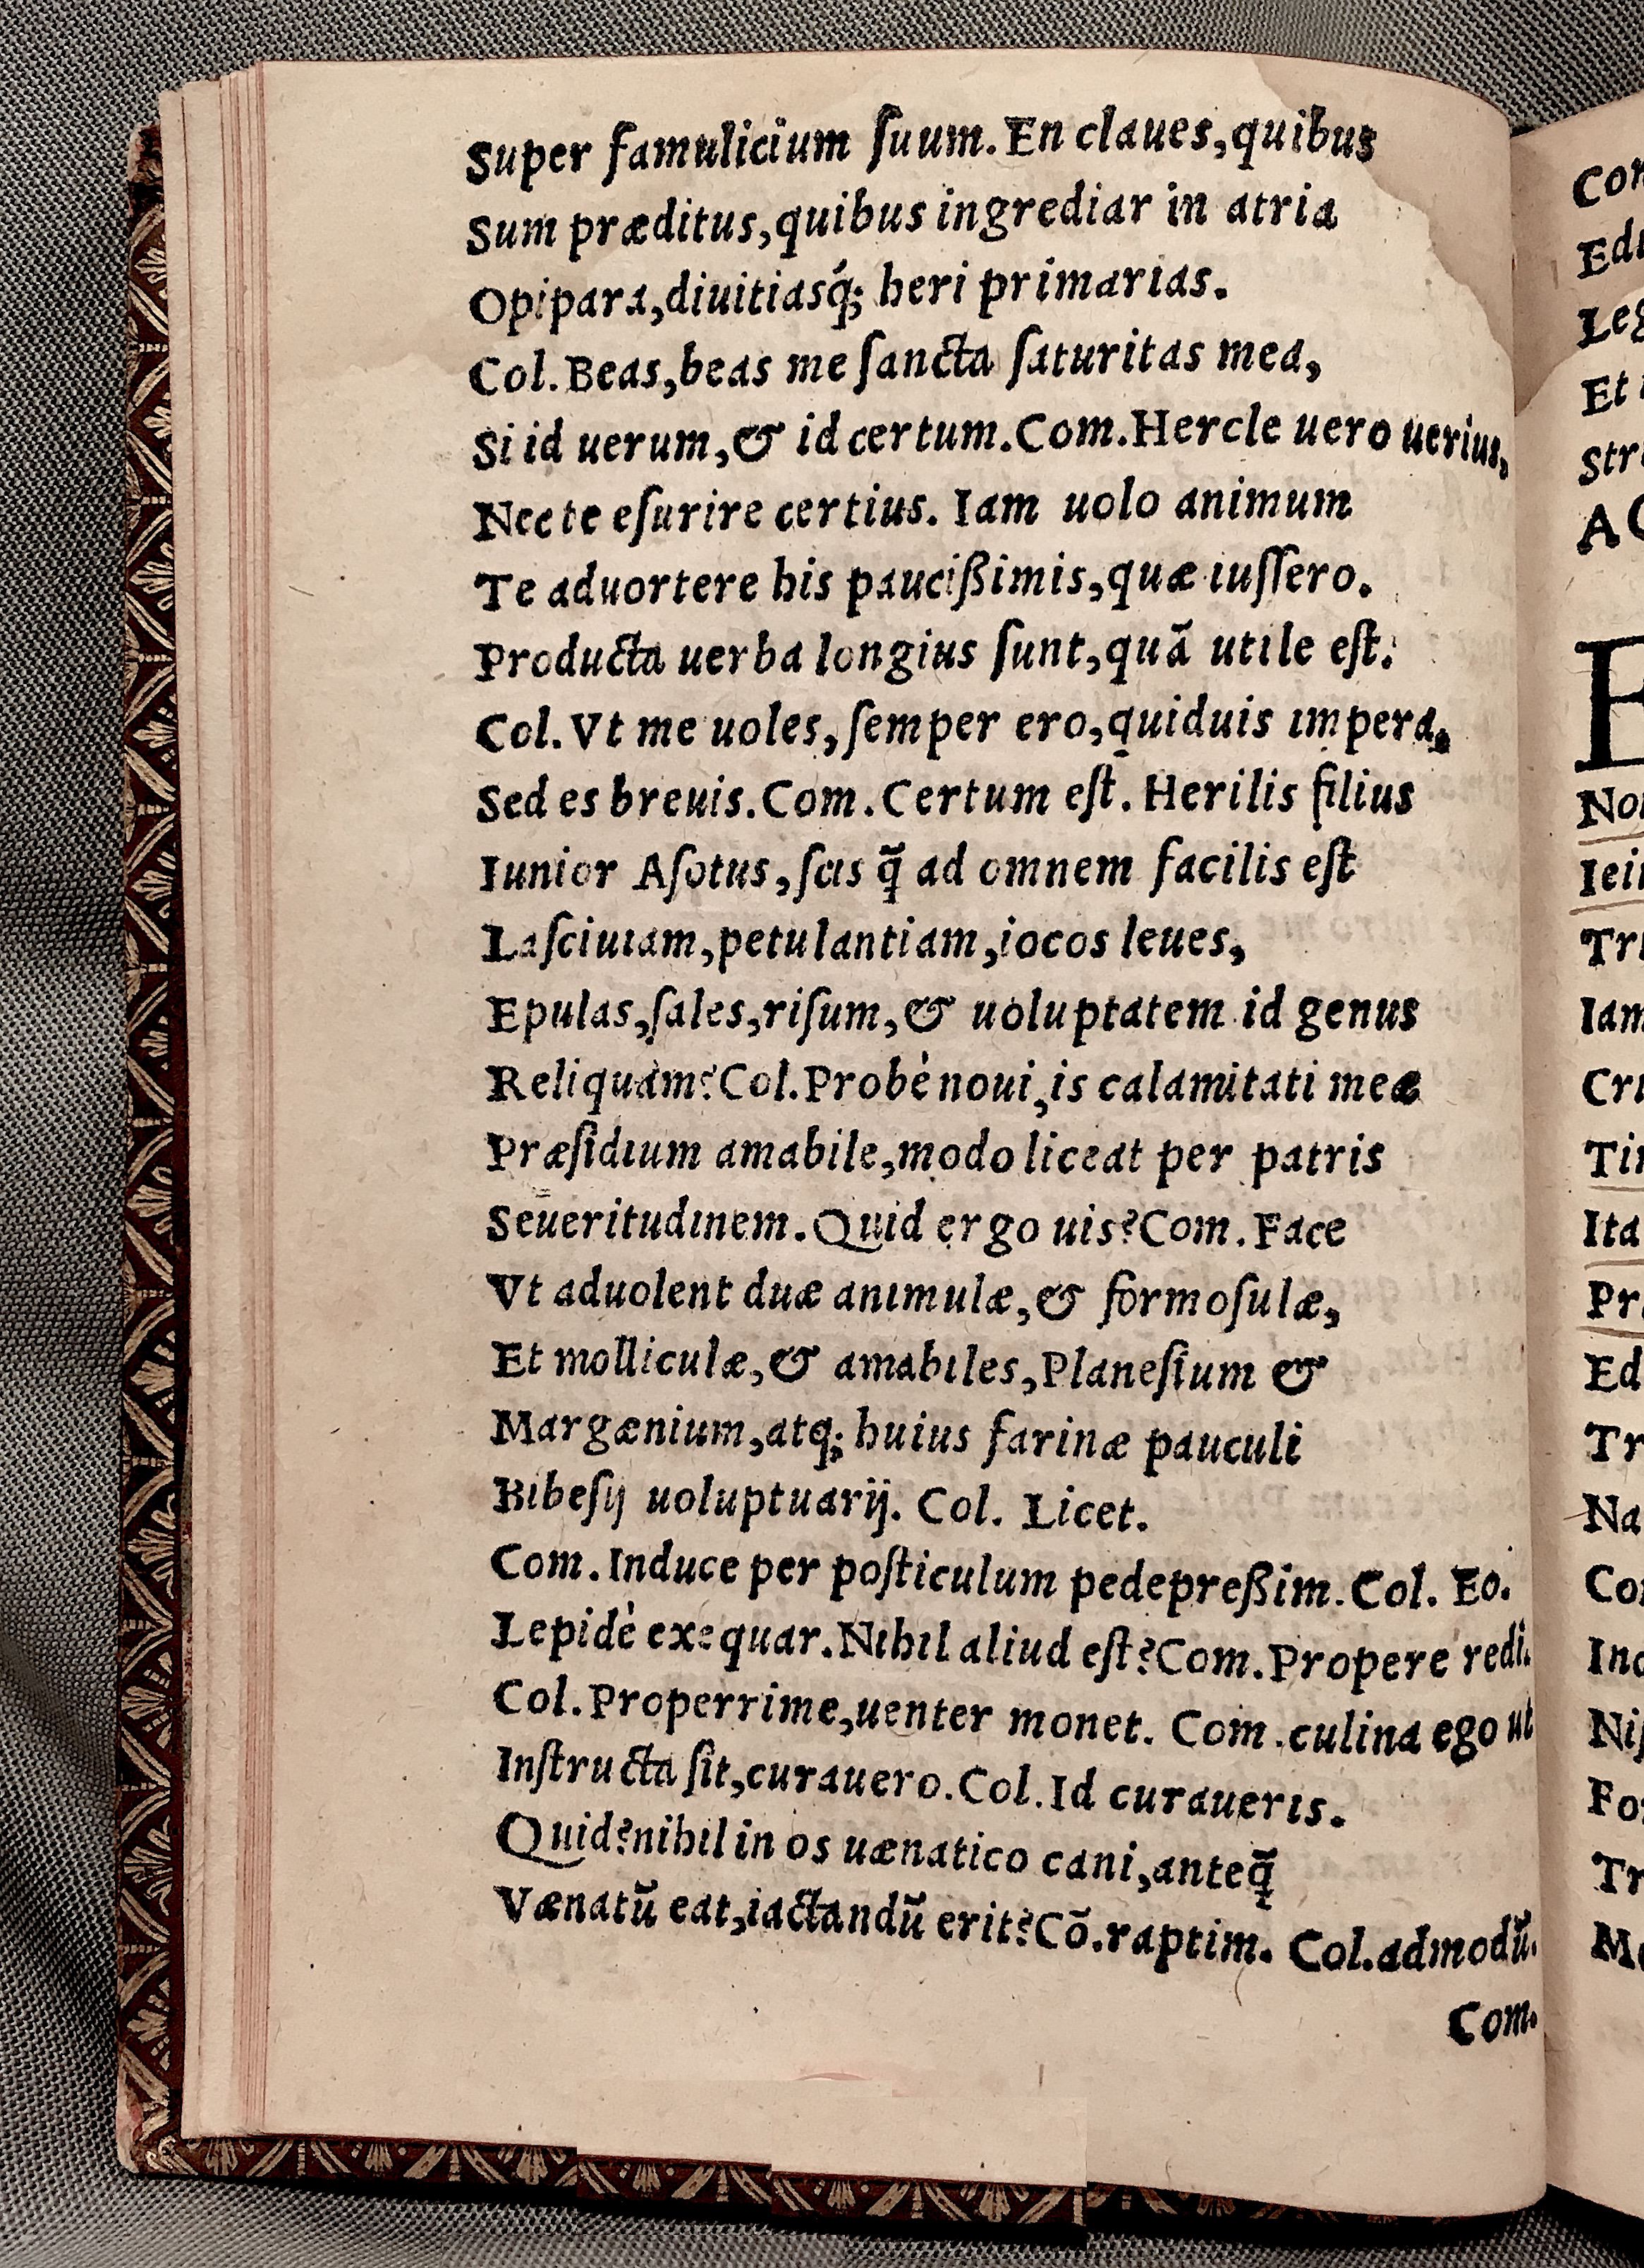 Super famulicium ſuum. En claues, quibus
Sum præditus, quibus ingrediar in atria
Opipara, diuitiasq́; heri primarias.
Col. Beas, beas me ſancta ſaturitas mea,
Si id uerum, & id certum. Com. Hercle uero uerius,
Nec te eſurire certius. Iam uolo animum
Te aduortere his pauciſsimis, quæ iuſſero.
Producta uerba longius ſunt, quā utile eſt.
Col. Vt me uoles, ſemper ero, quiduis impera,
Sed es breuis. Com. Certum eſt. Herilis filius
Iunior Aſotus, ſcis q̄ ad omnem facilis eſt
Laſciuiam, petulantiam, iocos leues,
Epulas, ſales, riſum, & uoluptatem id genus
Reliquam? Col. Probè noui, is calamitati meæ
Præſidium amabile, modo liceat per patris
Seueritudinem. Quid ergo uis? Com. Face
Vt aduolent duæ animulæ, & formoſulæ,
Et molliculæ, & amabiles, Planeſium &
Margænium, atq; huius farinæ pauculi
Bibeſij uoluptuarij. Col. Licet.
Com. Induce per poſticulum pedepreſsim. Col. Eo.
Lepidè exequar. Nihil aliud eſt? Com. Propere redi.
Col. Properrime, uenter monet. Com. culina ego ut
Inſtructa ſit, curauero. Col. Id curaueris.
Quid? nihil in os uænatico cani, anteq̄
Vænatū eat, iactandū erit? Cō. raptim. Col. admodū.
Com.